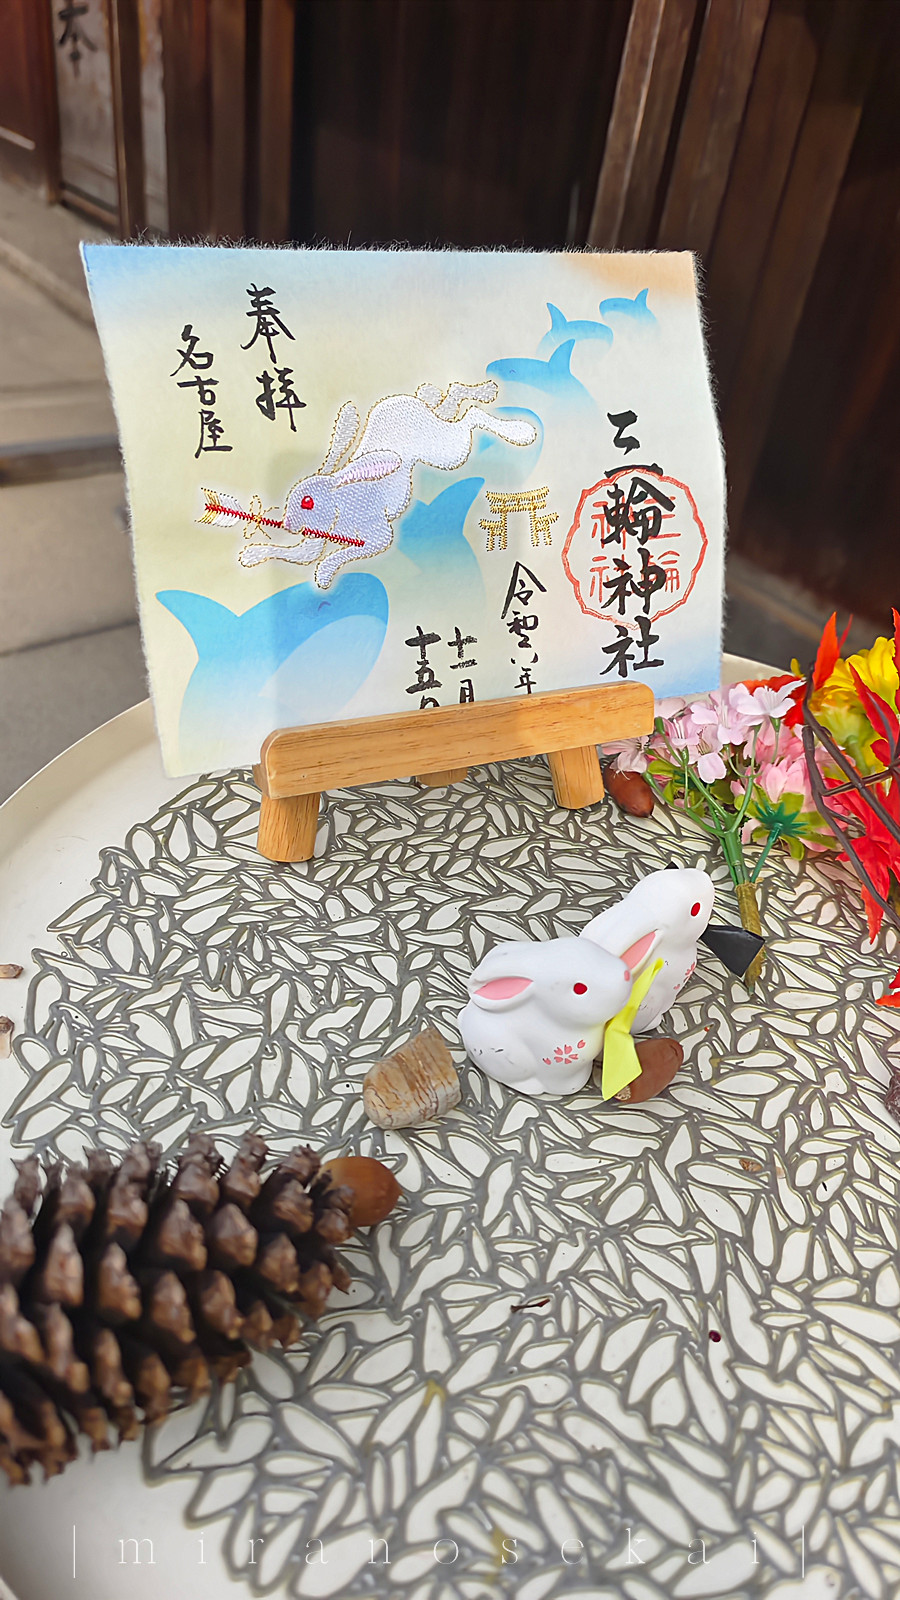 本
奉拝
名古屋
三輪神社
三輪
神社
令和六年
十一月
十五日
|miranosekai|